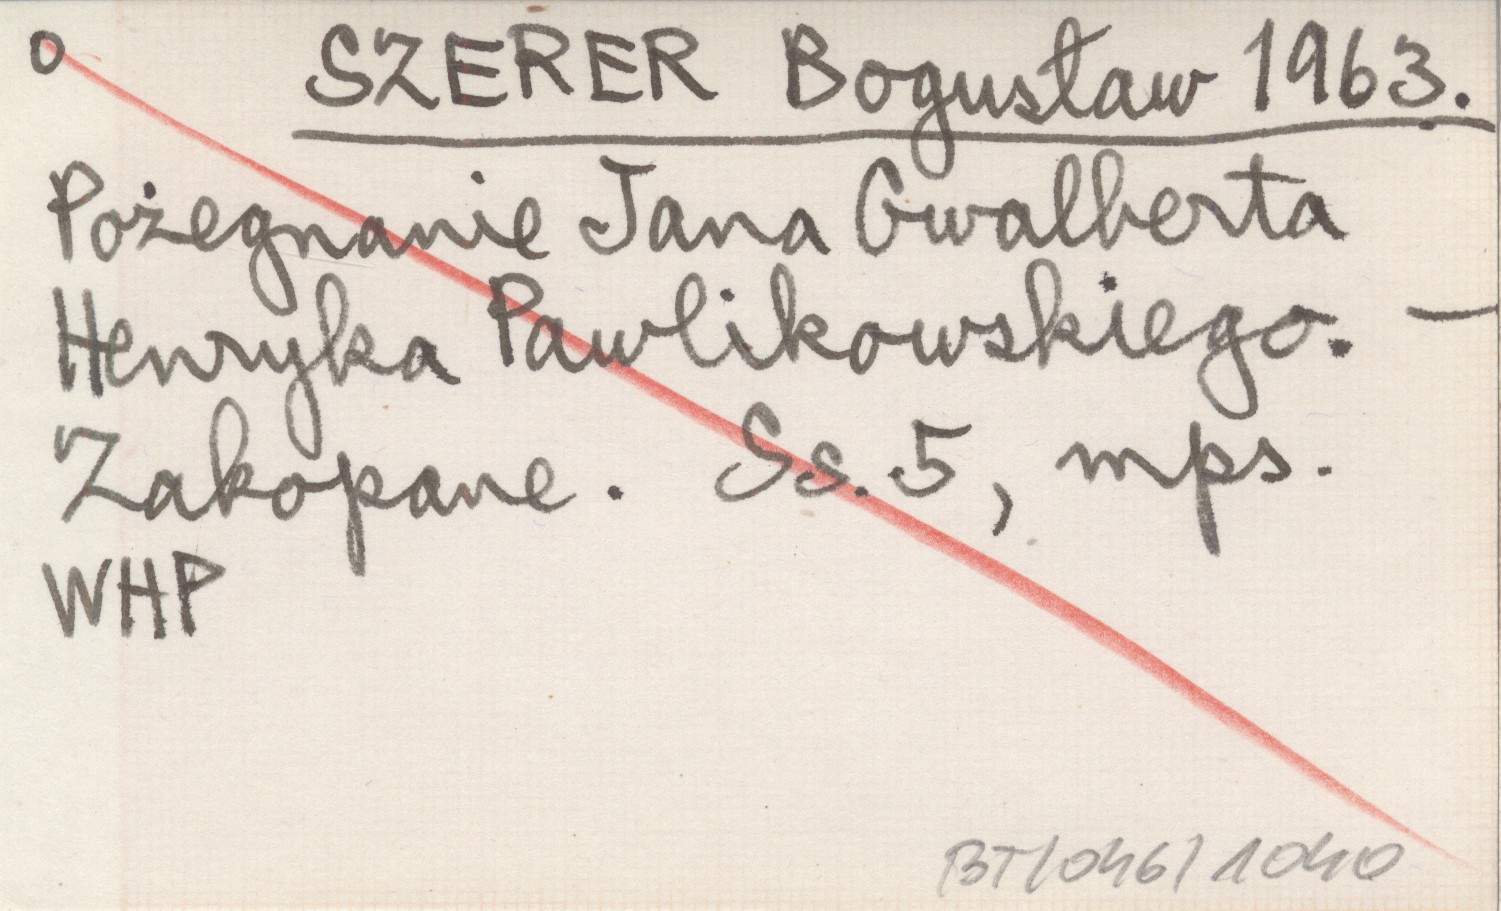 o SZERER Bogusław 1963.
Pożegnanie Jana Gwalberta
Henryka Pawlikowskiego. —
Zakopane. Ss. 5, mps.
WHP
BT/046/1040